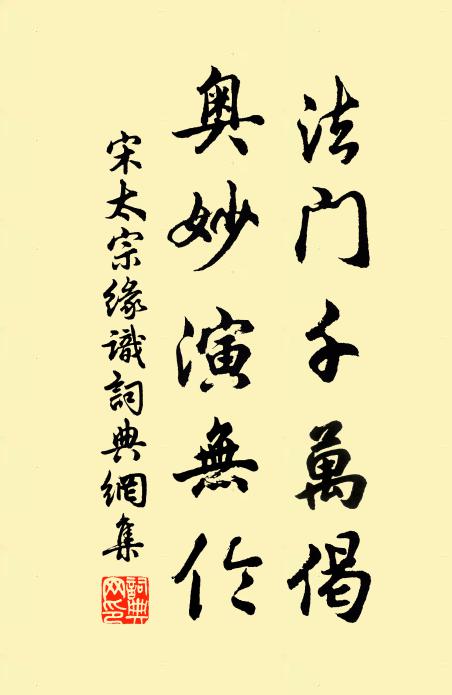 法门千萬偈
奥妙演無伦
宋太宗缘識詞典網集
詞典网印